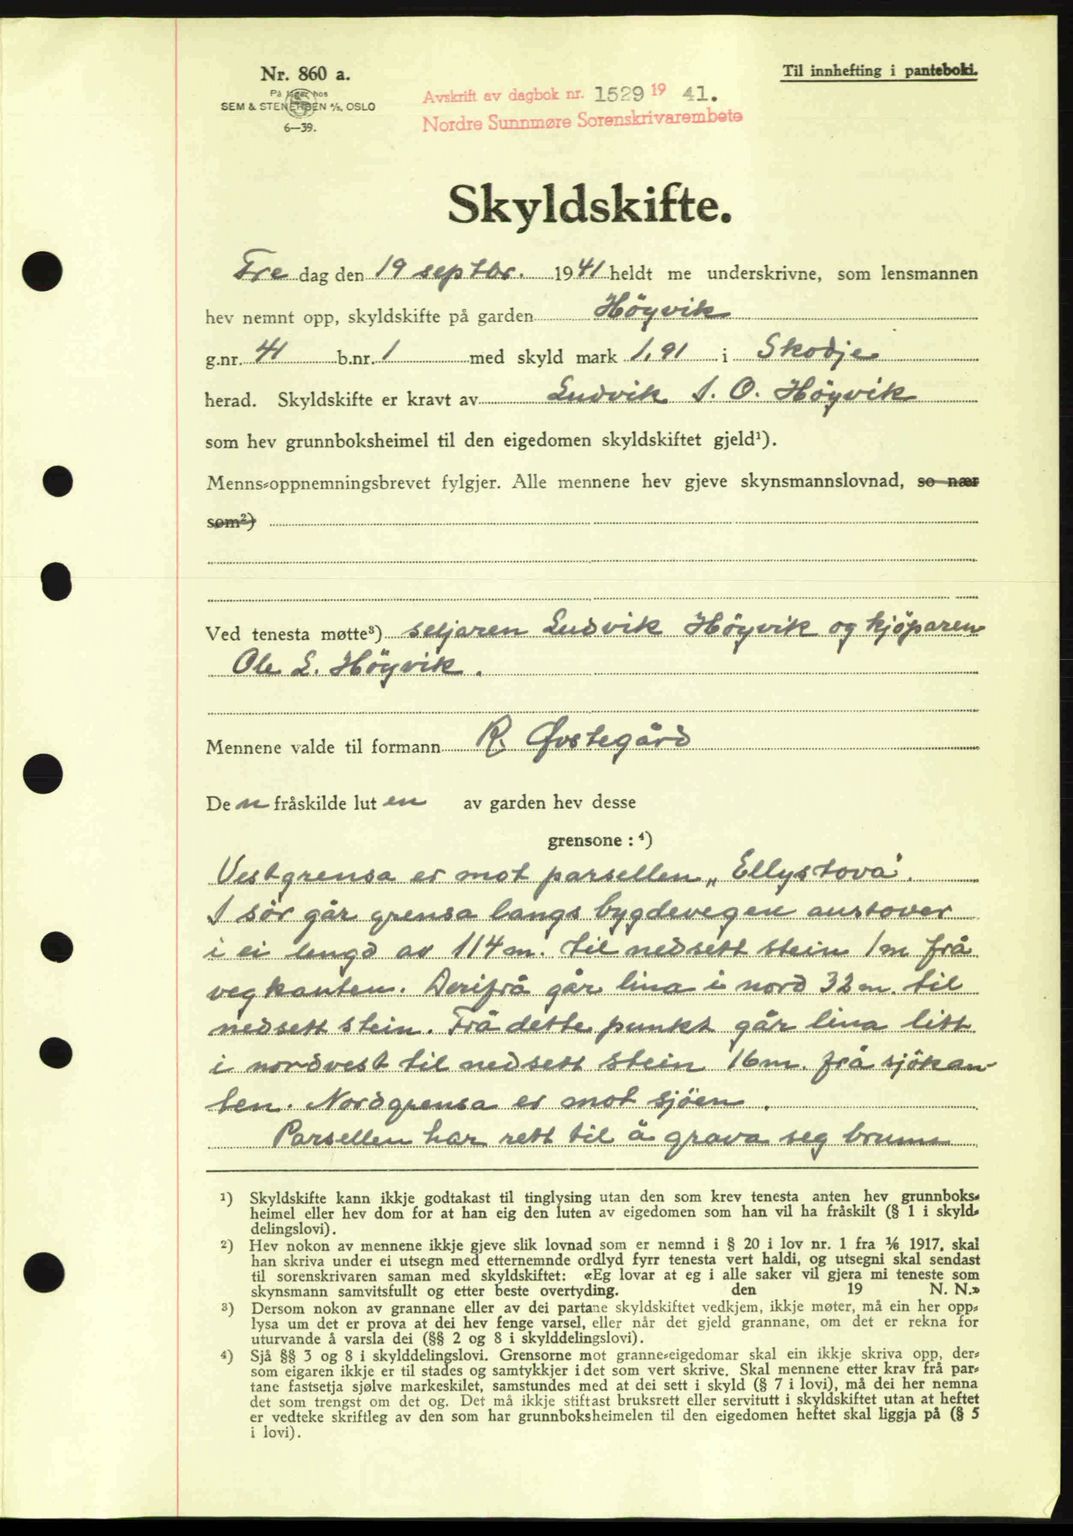 Nr. 860 a.
På lager hos
SEM & STENERSEN A/S, OSLO
6—39.
Til innhefting i panteboki.
Avskrift av dagbok nr. 1529 19 41.
Nordre Sunnmøre Sorenskrivarembete
Skyldskifte.
Fre dag den 19 septbr. 1941 heldt me underskrivne, som lensmannen
hev nemnt opp, skyldskifte på garden Höyvik
g.nr. 41 b.nr. 1 med skyld mark 1,91 i Skodje
herad. Skyldskifte er kravt av Ludvik I. O. Höyvik
som hev grunnboksheimel til den eigedomen skyldskiftet gjeld¹).
Menns-oppnemningsbrevet fylgjer. Alle mennene hev gjeve skynsmannslovnad, so nær
som²)
Ved tenesta møtte³) seljaren Ludvik Höyvik og kjöparen
Ole L. Höyvik.
Mennene valde til formann R. Øvstegård
De n fråskilde lut en av garden hev desse
grensone : ⁴)
Vestgrensa er mot parsellen „Ellystova".
I sör går grensa langs bygdevegen austover
i ei lengd av 114 m. til nedsett stein 1 m frå
vegkanten. Derifrå går lina i nord 32 m. til
nedsett stein. Frå dette punkt går lina litt
i nordvest til nedsett stein 16 m. frå sjökan-
ten. Nordgrensa er mot sjöen.
Parsellen har rett til å grava seg brunn
¹) Skyldskifte kann ikkje godtakast til tinglysing utan den som krev tenesta anten hev grunnboks-
heimel eller hev dom for at han eig den luten av eigedomen som han vil ha fråskilt (§ 1 i skyld-
delingslovi).
²) Hev nokon av mennene ikkje gjeve slik lovnad som er nemnd i § 20 i lov nr. 1 fra 1/6 1917, skal
han skriva under ei utsegn med etternemnde ordlyd fyrr tenesta vert haldi, og utsegni skal sendast
til sorenskrivaren saman med skyldskiftet: «Eg lovar at eg i alle saker vil gjera mi teneste som
skynsmann samvitsfullt og etter beste overtyding. den 19 N. N.»
³) Dersom nokon av grannane eller av dei partane skyldskiftet vedkjem, ikkje møter, må ein her opp-
lysa um det er prova at dei hev fenge varsel, eller når det gjeld grannane, om det er rekna for
uturvande å varsla dei (§§ 2 og 8 i skylddelingslovi).
⁴) Sjå §§ 3 og 8 i skylddelingslovi. Grensorne mot granne-eigedomar skal ein ikkje skriva opp, der-
som eigaren ikkje er til stades og samtykkjer i det som vert skrive. Skal mennene etter krav frå par-
tane fastsetja sjølve markeskilet, samstundes med at dei sett i skyld (§ 7 i lovi), må dei her nemna
det som trengst om det og. Det må ikkje stiftast bruksrett eller servitutt i skyldskiftet utan at heftet
er vedteke skriftleg av den som har grunnboksheimelen til den eigedomen heftet skal liggja på (§ 5
i lovi).